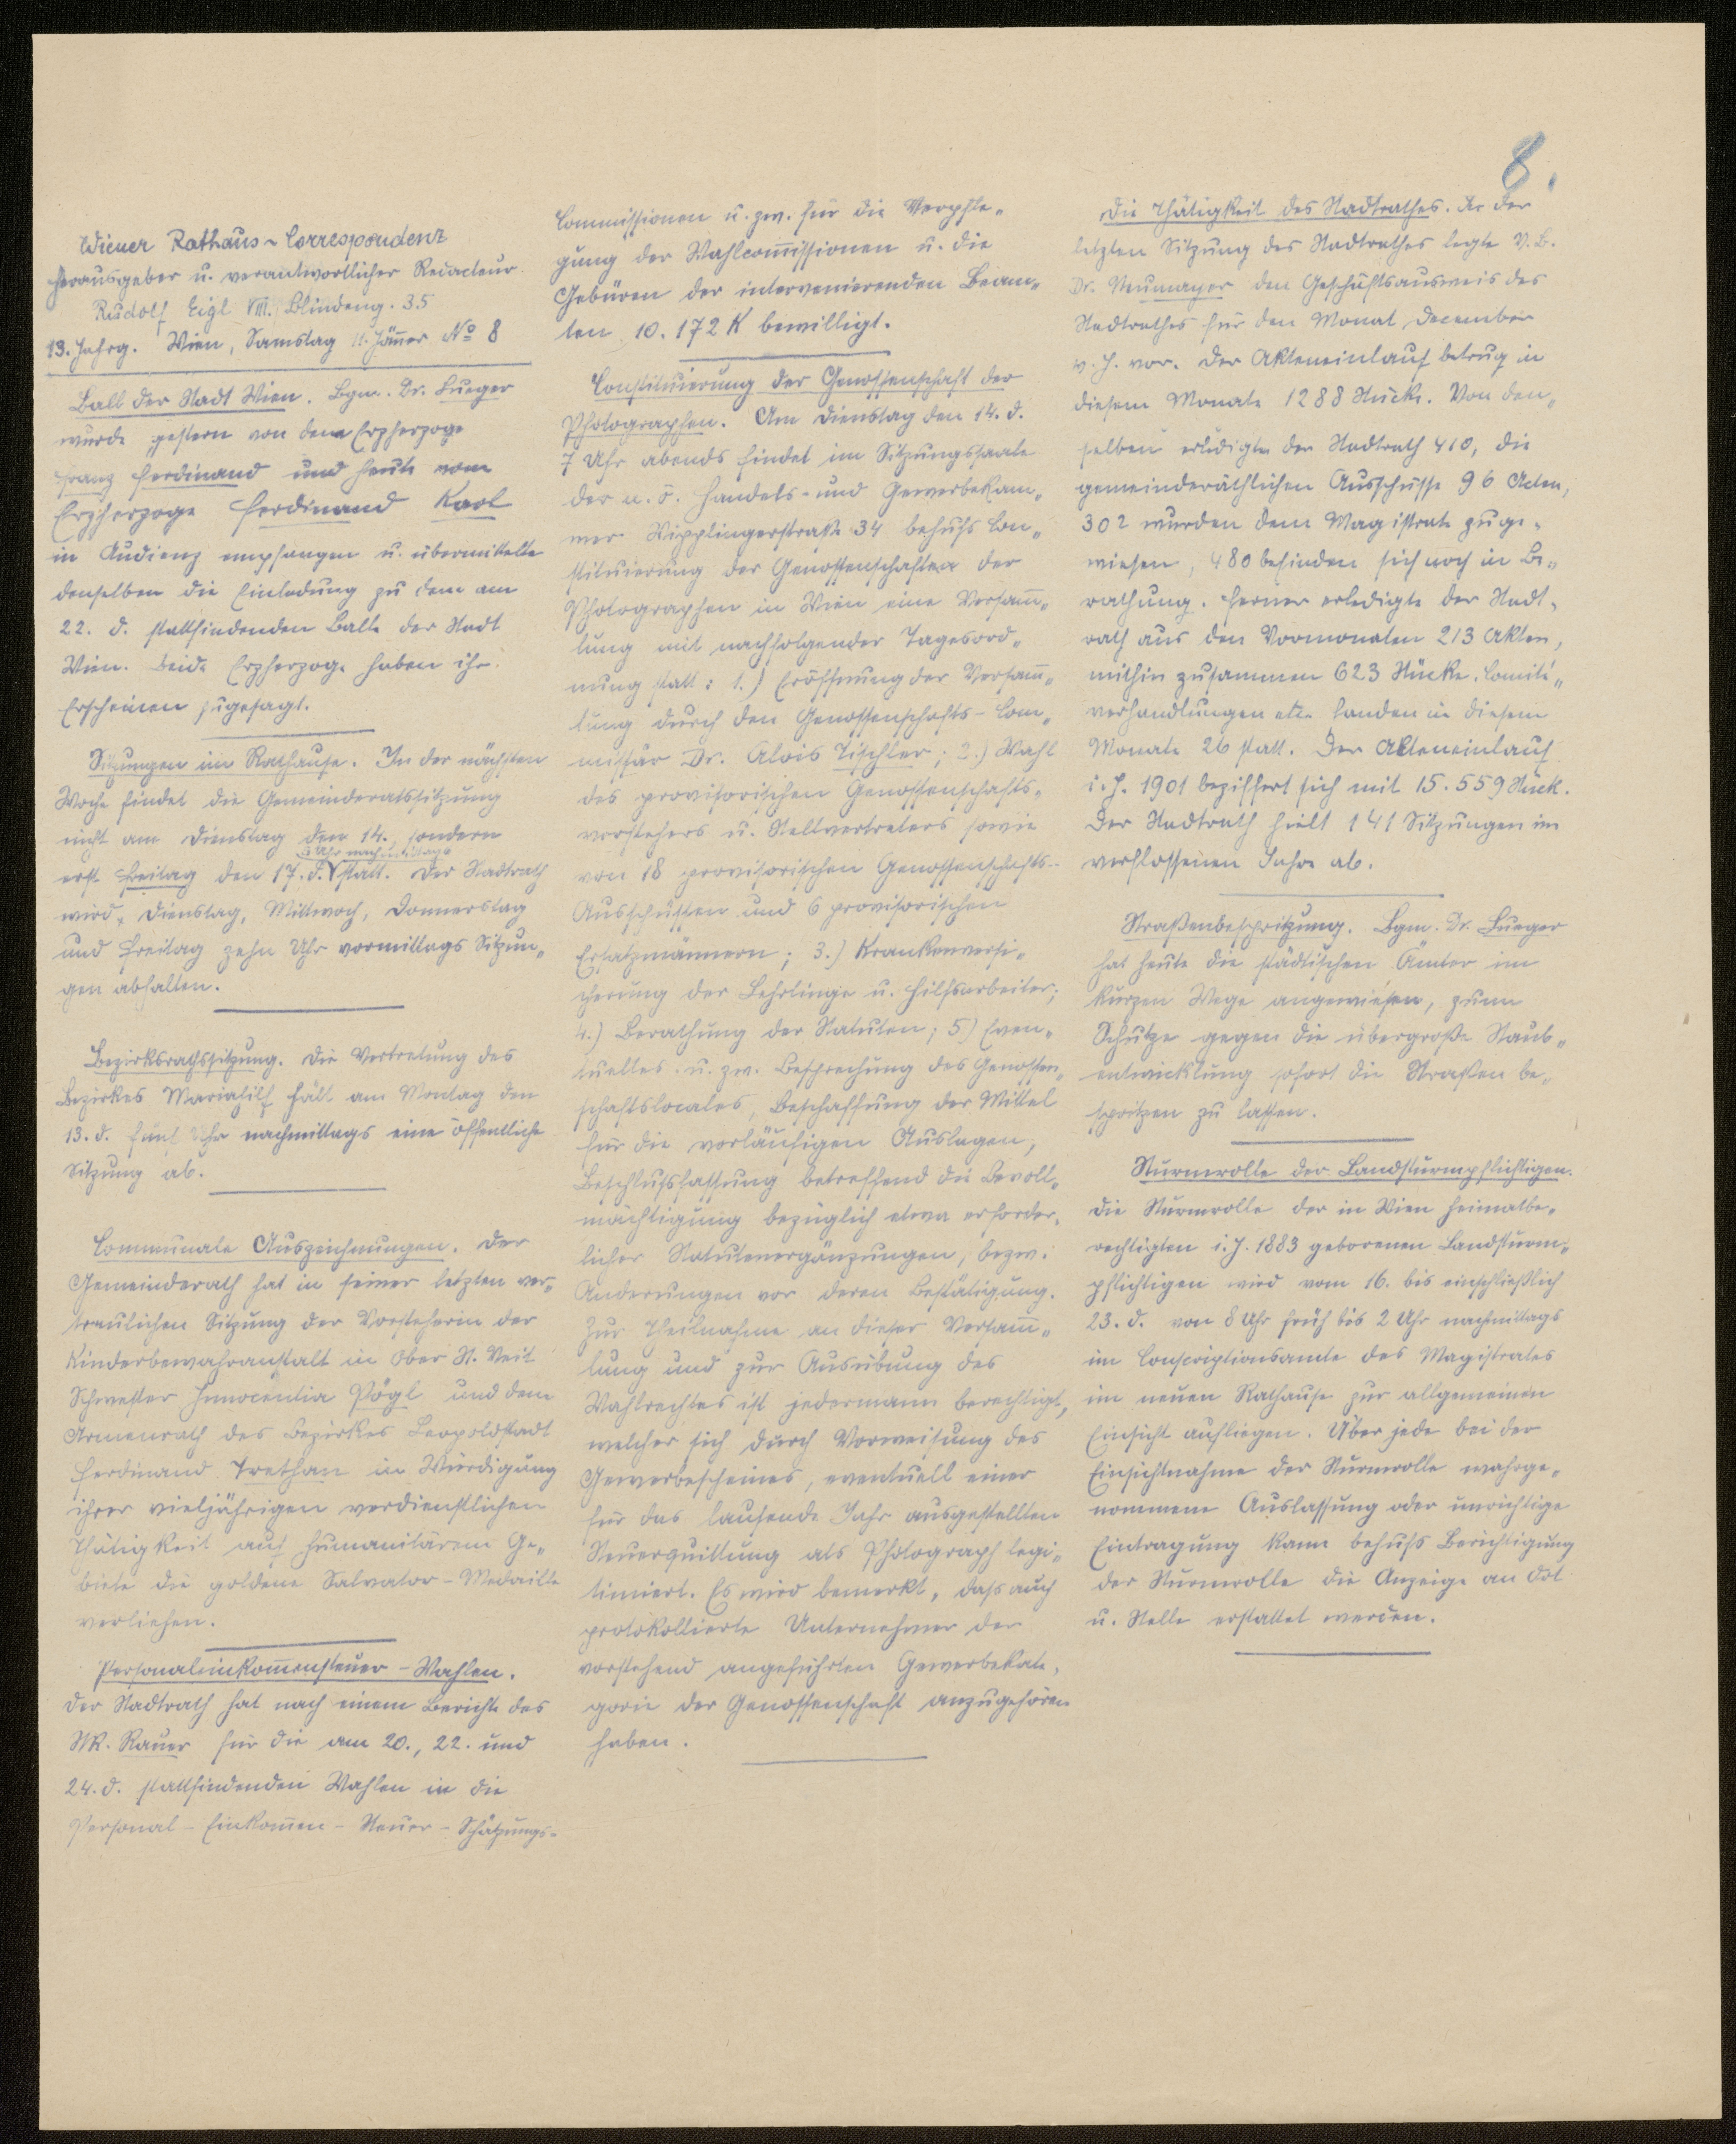 8.
Wiener Rathaus-Correspondenz
Herausgeber u. verantwortlicher Redacteur
Rudolf Eigl VIII. Blindeng. 35
13. Jahrg. Wien, Samstag 11. Jänner No 8
Ball der Stadt Wien. Bgm. Dr. Lueger
wurde gestern von dem Erzherzoge
Franz Ferdinand und heute vom
Erzherzoge Ferdinand Karl
in Audienz empfangen u. übermittelte
denselben die Einladung zu dem am
22. d. stattfindenden Balle der Stadt
Wien. Beide Erzherzoge haben ihr
Erscheinen zugesagt.
Sitzungen im Rathause. In der nächsten
Woche findet die Gemeinderatssitzung
nicht am Dienstag den 14., sondern
5 Uhr nachmittags
erst Freitag den 17. d. statt. Der Stadtrath
wird Dienstag, Mittwoch, Donnerstag
und Freitag zehn Uhr vormittags Sitzun-
gen abhalten.
Bezirksrathssitzung. Die Vertretung des
Bezirkes Mariahilf hält am Montag den
13. d. fünf Uhr nachmittags eine öffentliche
Sitzung ab.
Communale Auszeichnungen. Der
Gemeinderath hat in seiner letzten ver-
traulichen Sitzung der Vorsteherin der
Kinderbewahranstalt in Ober St. Veit
Schwester Innocentia Pögl und dem
Armenrath des Bezirkes Leopoldstadt
Ferdinand Trethan in Würdigung
ihrer vieljährigen verdienstlichen
Thätigkeit auf humanitärem Ge-
biete die goldene Salvator-Medaille
verliehen.
Personaleinkom̅ensteuer-Wahlen.
Der Stadtrath hat nach einem Berichte des
StR. Rauer für die am 20., 22. und
24. d. stattfindenden Wahlen in die
Personal-Einkom̅en-Steuer-Schätzungs-
Commissionen u. zw. für die Verpfle-
gung der Wahlcom̅issionen u. die
Gebüren der intervenierenden Beam-
ten 10.172 K bewilligt.
Constituierung der Genossenschaft der
Photographen. Am Dienstag den 14. d.
7 Uhr abends findet im Sitzungssaale
der n. ö. Handels- und Gewerbekam-
mer Wipplingerstraße 34 behufs Con-
stituierung der Genossenschaften der
Photographen in Wien eine Versam̅-
lung mit nachfolgender Tagesord-
nung statt: 1.) Eröffnung der Versam̅-
lung durch den Genossenschafts-Com-
missär Dr. Alois Tischler; 2.) Wahl
des provisorischen Genossenschafts-
vorstehers u. Stellvertreters sowie
von 18 provisorischen Genossenschafts-
Ausschüssen und 6 provisorischen
Ersatzmännern; 3.) Krankenversi-
cherung der Lehrlinge u. Hilfsarbeiter;
4.) Berathung der Statuten; 5) Even-
tuelles u. zw. Besprechung des Genossen-
schaftslocales, Beschaffung der Mittel
für die vorläufigen Auslagen,
Beschlußfassung betreffend die Bevoll-
mächtigung bezüglich etwa erforder-
licher Statutenergänzungen, bezw.
Änderungen vor deren Bestätigung.
Zur Theilnahme an dieser Versam̅-
lung und zur Ausübung des
Wahlrechtes ist jedermann berechtigt,
welcher sich durch Vorweisung des
Gewerbescheines, eventuell einer
für das laufende Jahr ausgestellten
Steuerquittung als Photograph legi-
timiert. Es wird bemerkt, daß auch
protokollierte Unternehmer der
vorstehend angeführten Gewerbekate-
gorie der Genossenschaft anzugehören
haben.
Die Thätigkeit des Stadtrathes. In der
letzten Sitzung des Stadtrathes legte V.B.
Dr. Neumayer den Geschäftsausweis des
Stadtrathes für den Monat December
v. J. vor. Der Akteneinlauf betrug in
diesem Monate 1288 Stücke. Von den-
selben erledigte der Stadtrath 410, die
gemeinderäthlichen Ausschüsse 96 Acten,
302 wurden dem Magistrate zuge-
wiesen, 480 befinden sich noch in Be-
rathung. Ferner erledigte der Stadt-
rath aus den Vormonaten 213 Akten,
mithin zusammen 623 Stücke. Comité-
verhandlungen etc. fanden in diesem
Monate 26 statt. Der Akteneinlauf
i. J. 1901 beziffert sich mit 15.559 Stück.
Der Stadtrath hielt 141 Sitzungen im
verflossenen Jahre ab.
Straßenbespritzung. Bgm. Dr. Lueger
hat heute die städtischen Ämter im
kurzen Wege angewiesen, zum
Schutze gegen die übergroße Staub-
entwicklung sofort die Straßen be-
spritzen zu lassen.
Sturmrolle der Landsturmpflichtigen.
Die Sturmrolle der in Wien heimatbe-
rechtigten i. J. 1883 geborenen Landsturm-
pflichtigen wird vom 16. bis einschließlich
23. d. von 8 Uhr früh bis 2 Uhr nachmittags
im Conscriptionsamte des Magistrates
im neuen Rathause zur allgemeinen
Einsicht aufliegen. Über jede bei der
Einsichtnahme der Sturmrolle wahrge-
nommene Auslassung oder unrichtige
Eintragung kann behufs Berichtigung
der Sturmrolle die Anzeige an Ort
u. Stelle erstattet werden.